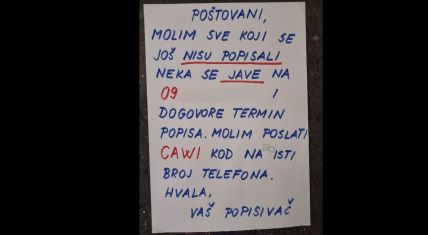 POŠTOVANI,
MOLIM SVE KOJI SE
JOŠ NISU POPISALI
NEKA SE JAVE NA
09 I
DOGOVORE TERMIN
POPISA. MOLIM POSLATI
CAWI KOD NA ISTI
BROJ TELEFONA.
HVALA,
VAŠ POPISIVAČ